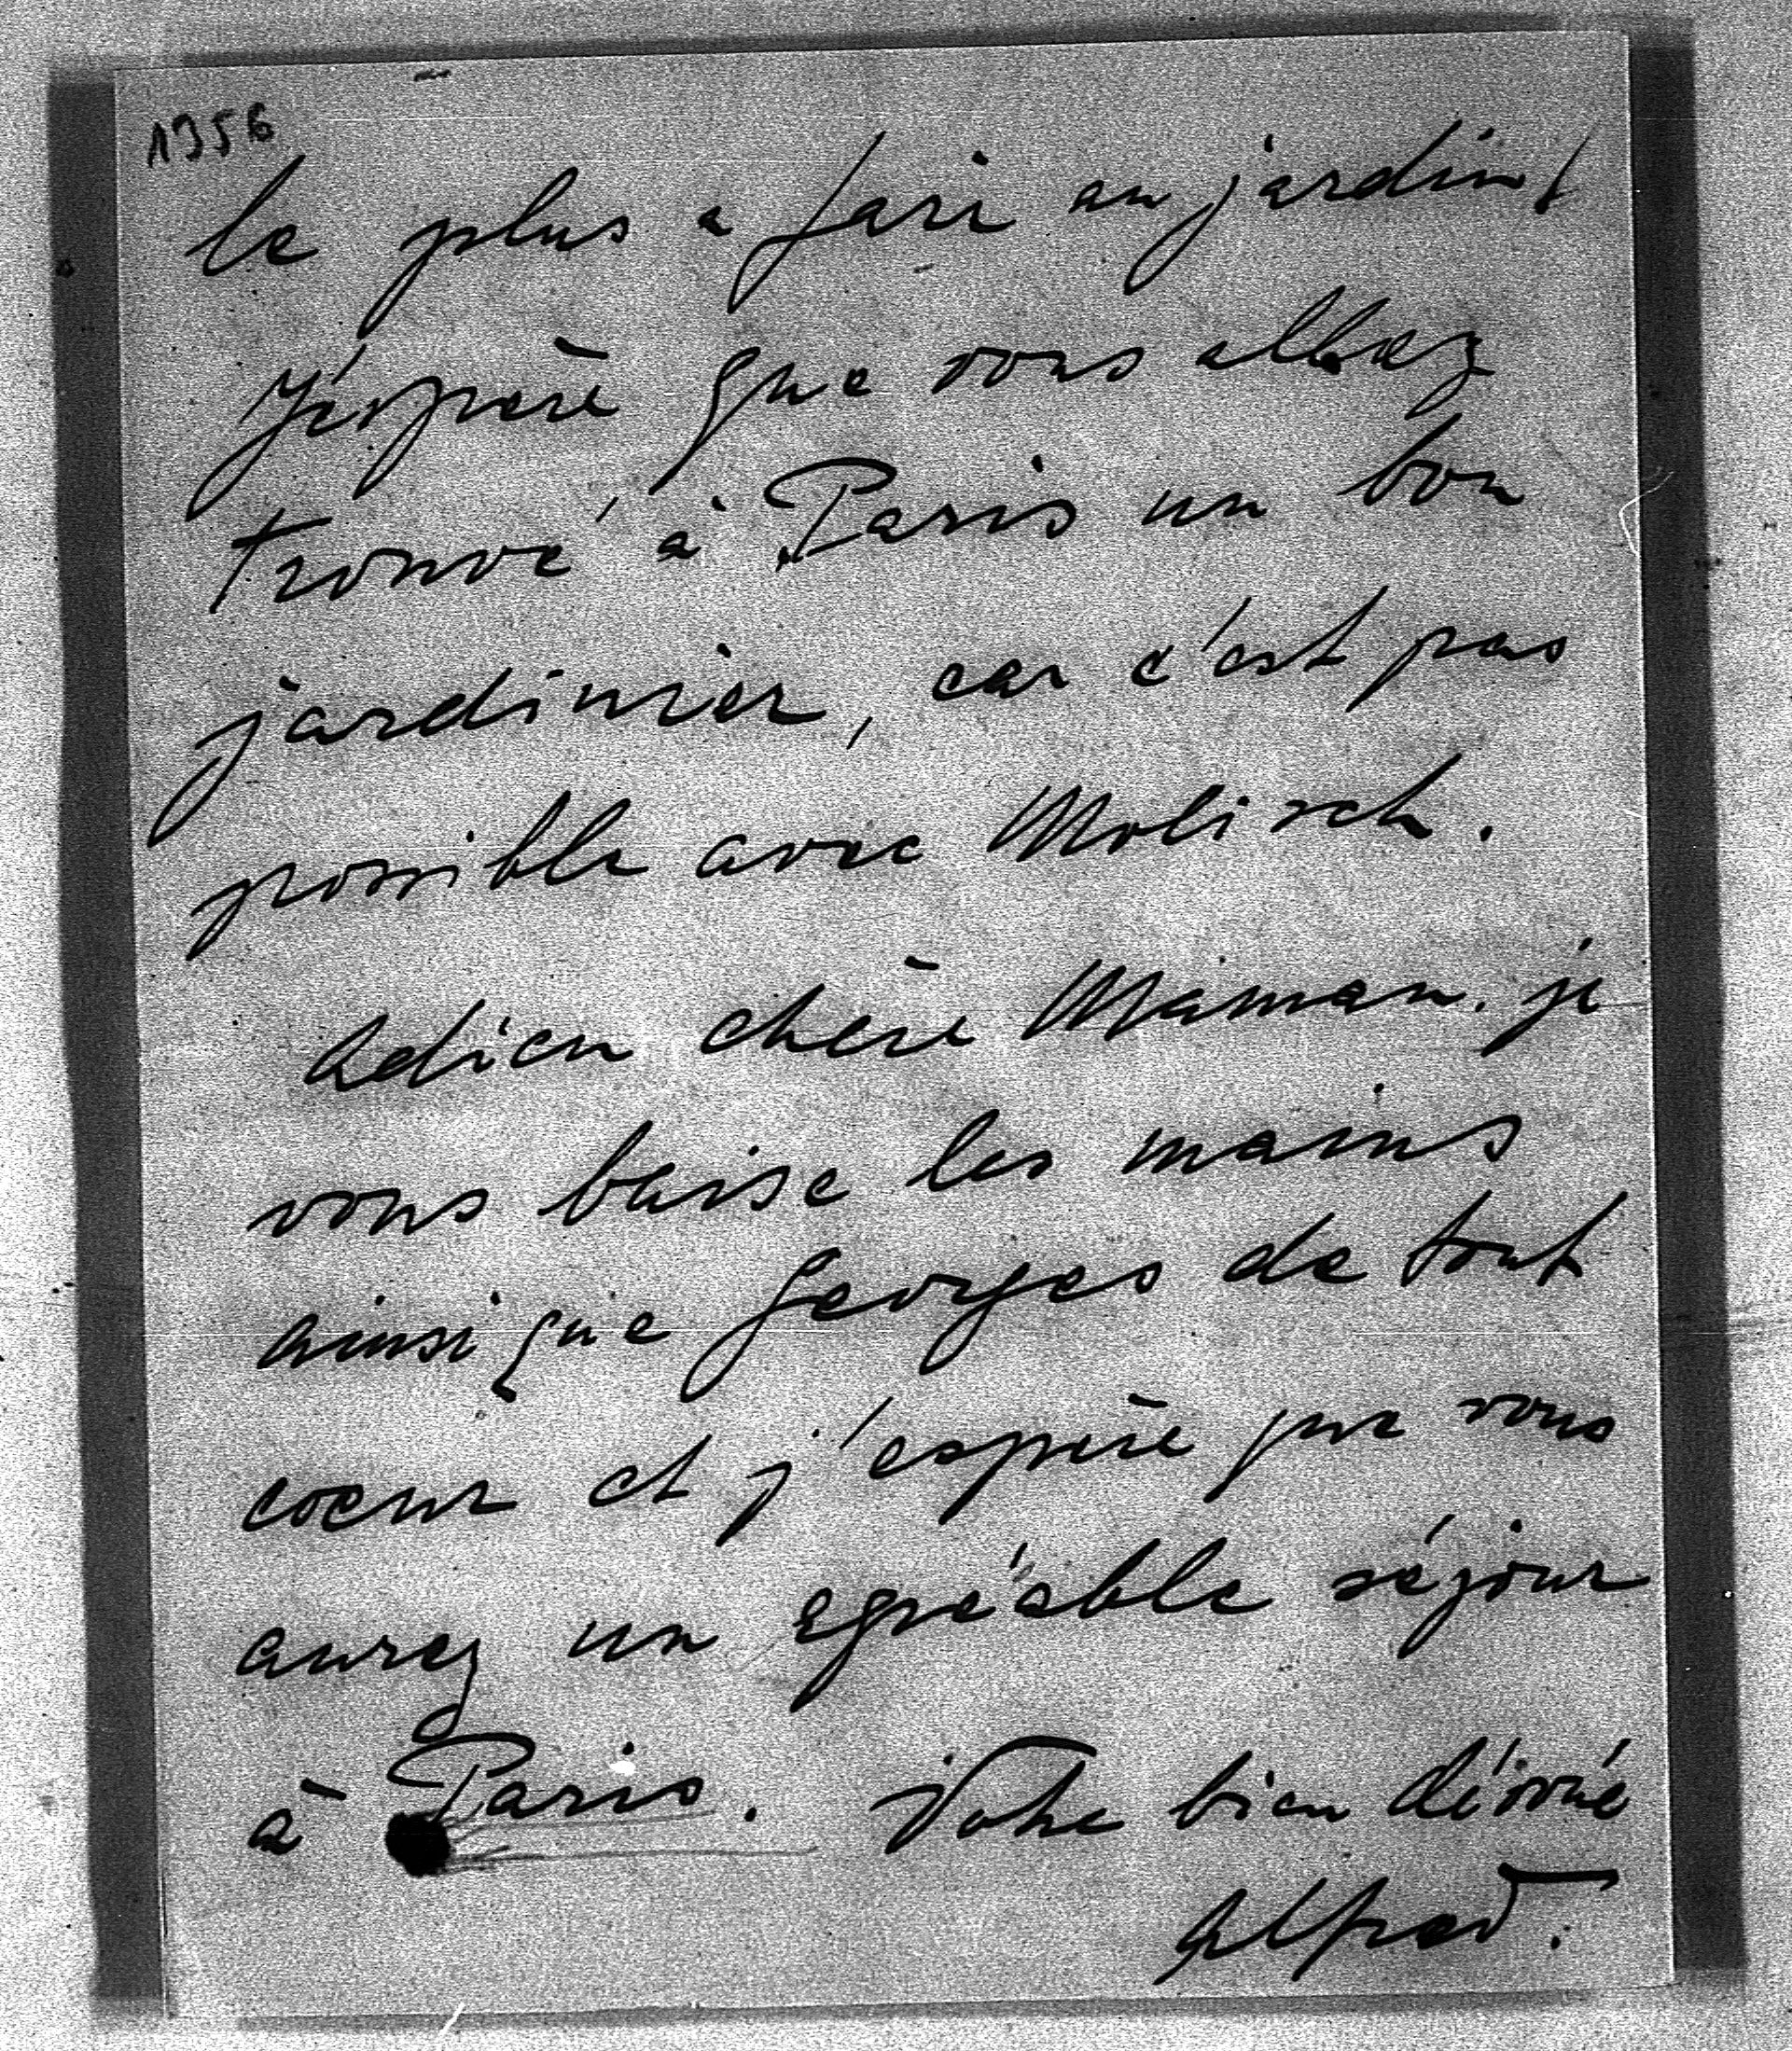 1356
le plus a faire au jardin!
J'éspère que vous allez
trouvé à Paris un bon
jardinier, car c'est pas
possible avec Molisch.
Adieu chère Maman. je
vous baise les mains
ainsi que Georges de tout
coeur et j'espère que vous
aurez un agréable séjour
à Paris. Votre bien dévoué
Alfred.